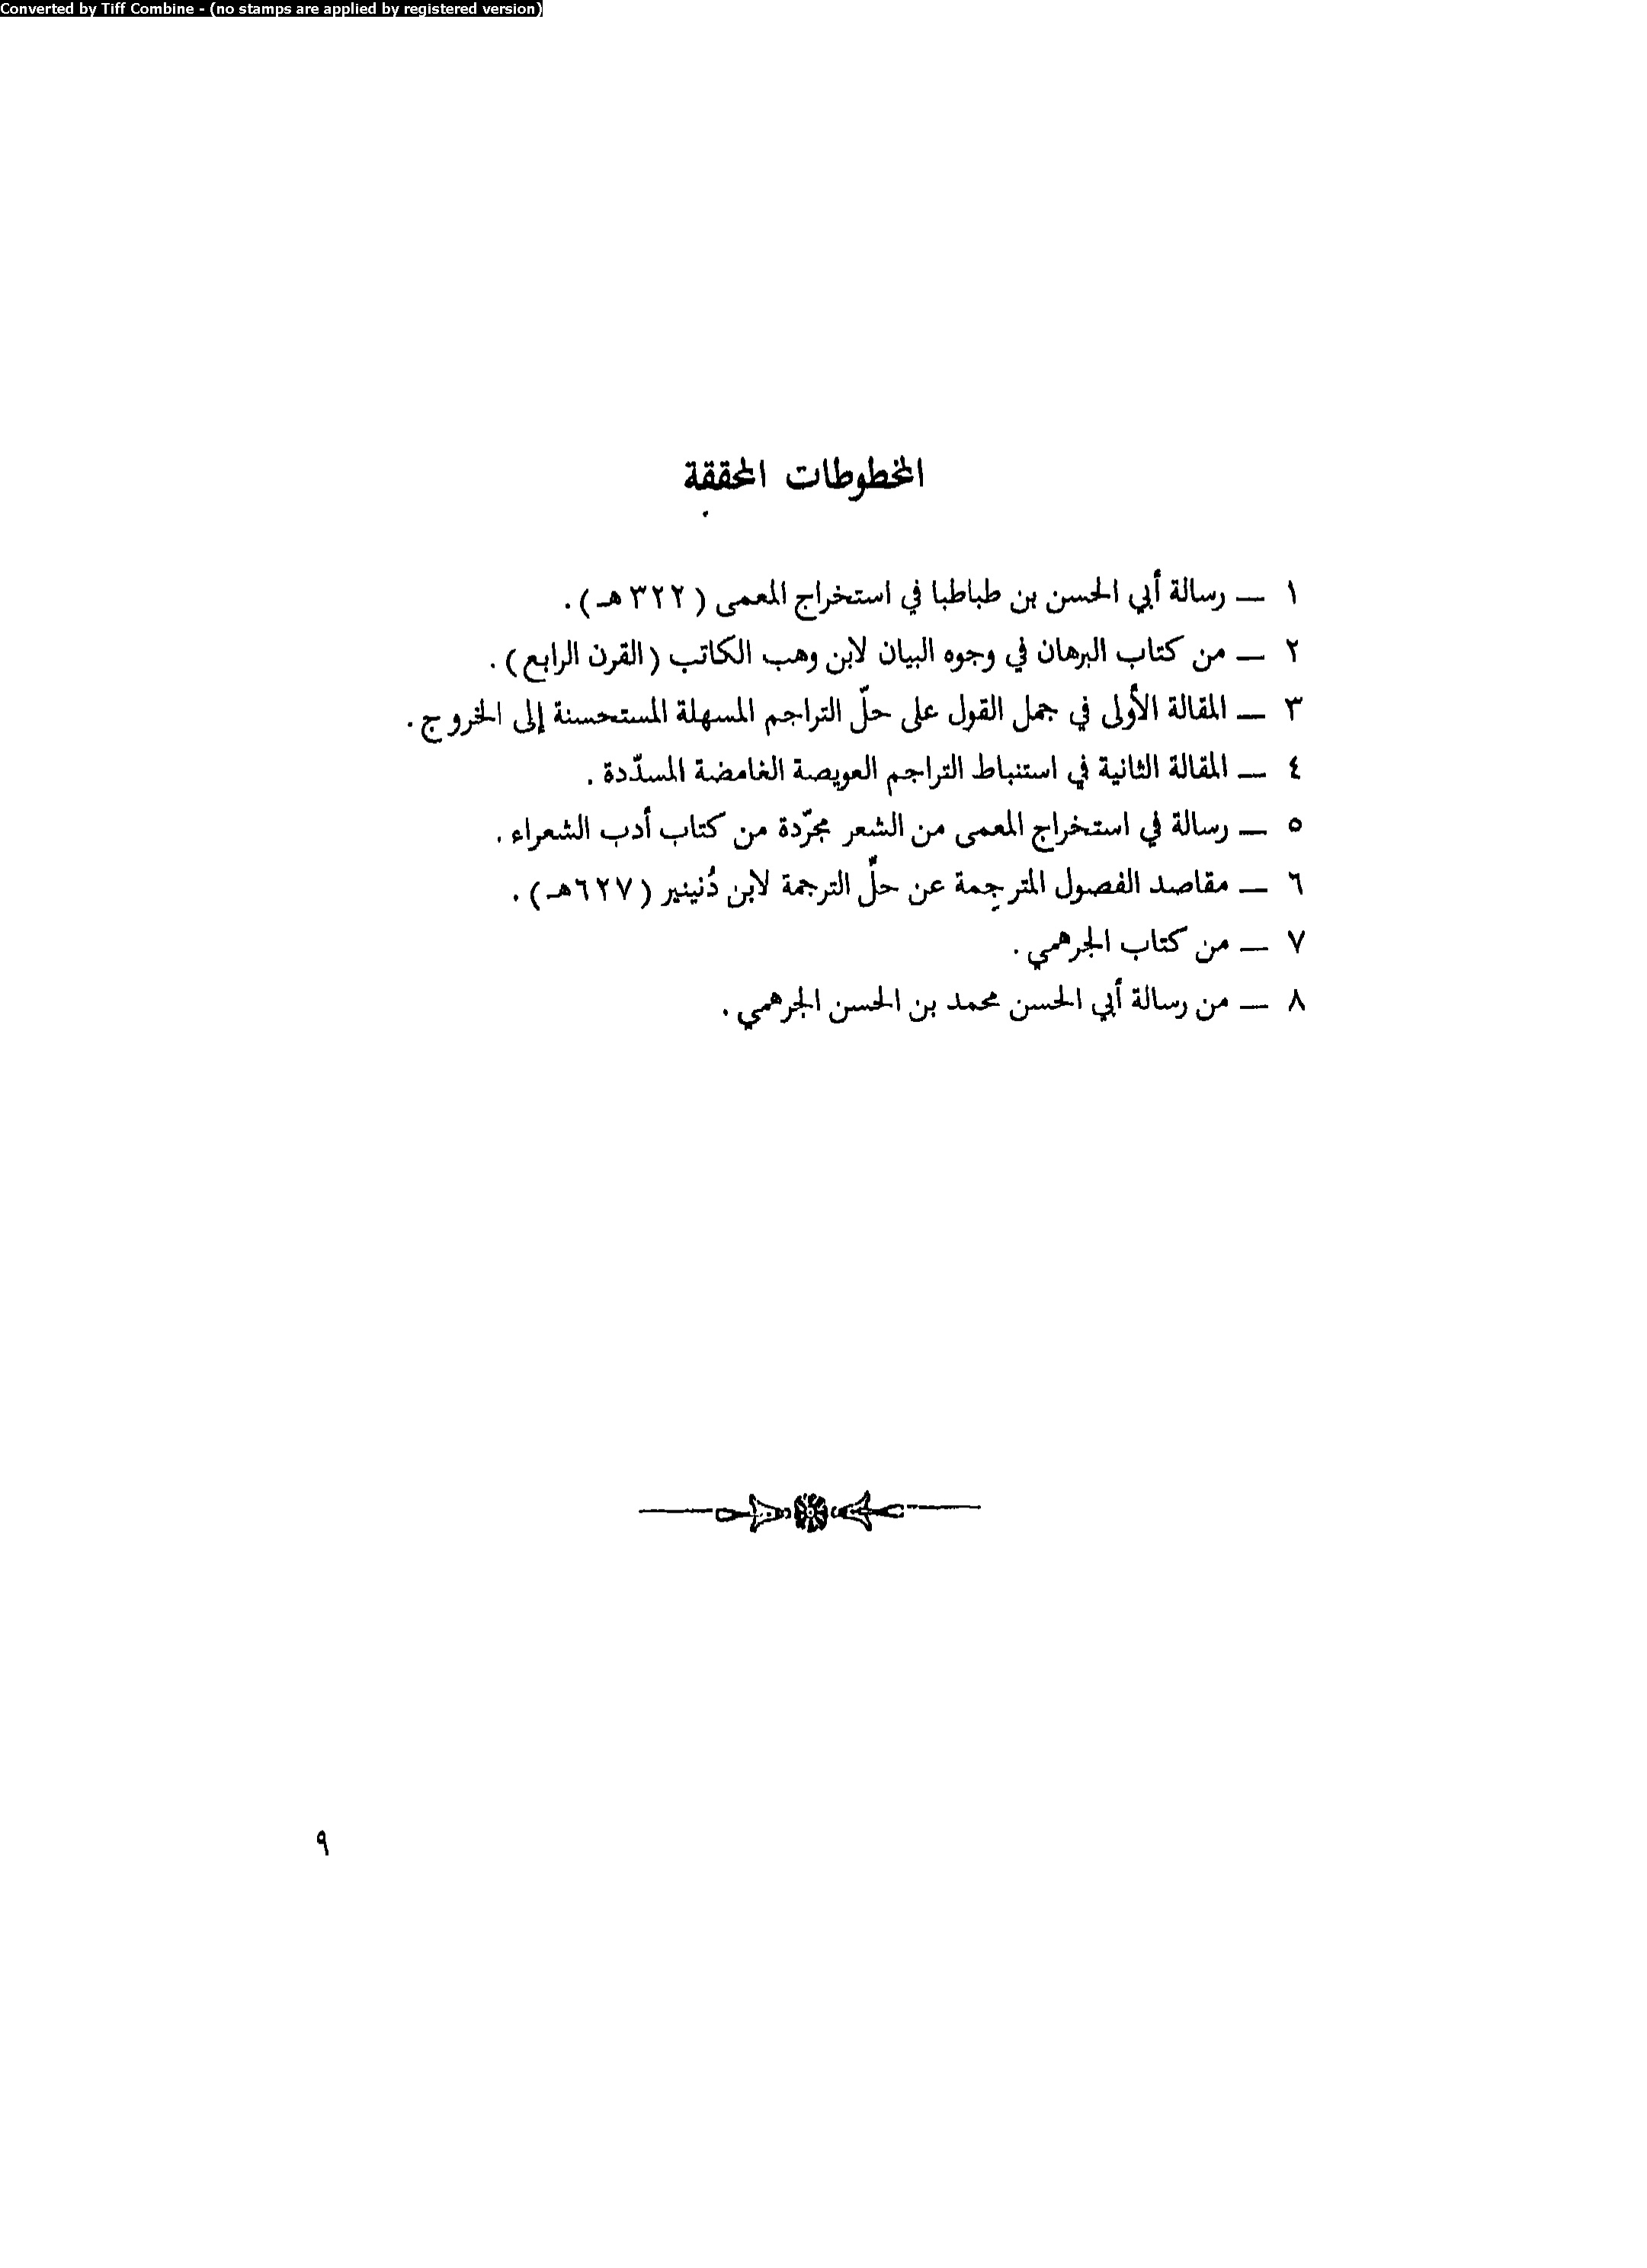 Converted by Tiff Combine - (no stamps are applied by registered version)
المخطوطات المحققة
١ — رسالة أبي الحسن بن طباطبا في استخراج المعمى (٣٢٢ هـ).
٢ — من كتاب البرهان في وجوه البيان لابن وهب الكاتب (القرن الرابع).
٣ — المقالة الأولى في جمل القول على حلّ التراجم المسهلة المستحسنة إلى الخروج.
٤ — المقالة الثانية في استنباط التراجم العويصة الغامضة المسدّدة.
٥ — رسالة في استخراج المعمى من الشعر مجرّدة من كتاب أدب الشعراء.
٦ — مقاصد الفصول المترجِمة عن حلِّ الترجمة لابن دُنينير (٦٢٧هـ).
٧ — من كتاب الجرهمي.
٨ — من رسالة أبي الحسن محمد بن الحسن الجرهمي.
٩